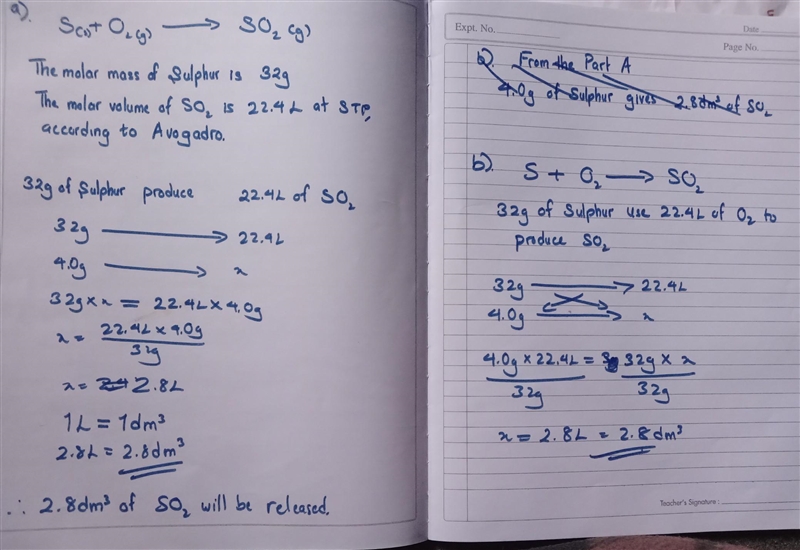 a).
S(s) + O₂(g) ⟶ SO₂(g)
The molar mass of Sulphur is 32g
The molar volume of SO₂ is 22.4L at STP,
according to Avogadro.
32g of Sulphur produce 22.4L of SO₂
32g ⟶ 22.4L
4.0g ⟶ x
32g × x = 22.4L × 4.0g
x = 22.4L × 4.0g
32g
x = 2.8L
1L = 1dm³
2.8L = 2.8dm³
∴ 2.8dm³ of SO₂ will be released.
Expt. No.
Date
Page No.
b). From the Part A
4.0g of Sulphur gives 2.8dm³ of SO₂
b). S + O₂ ⟶ SO₂
32g of Sulphur use 22.4L of O₂ to
produce SO₂
32g ⟶ 22.4L
4.0g ⟶ x
4.0g × 22.4L = 32g × x
32g 32g
x = 2.8L = 2.8dm³
Teacher's Signature :